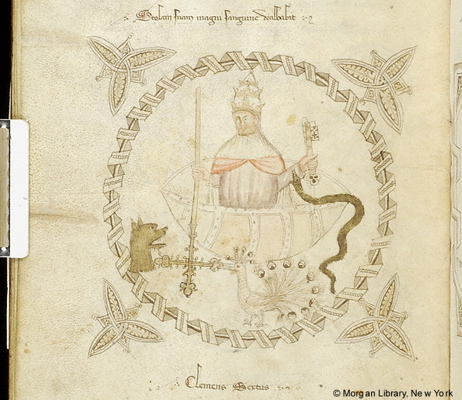 Stolam suam in agni sanguine dealbabit
Clemens Sextus
© Morgan Library, New York